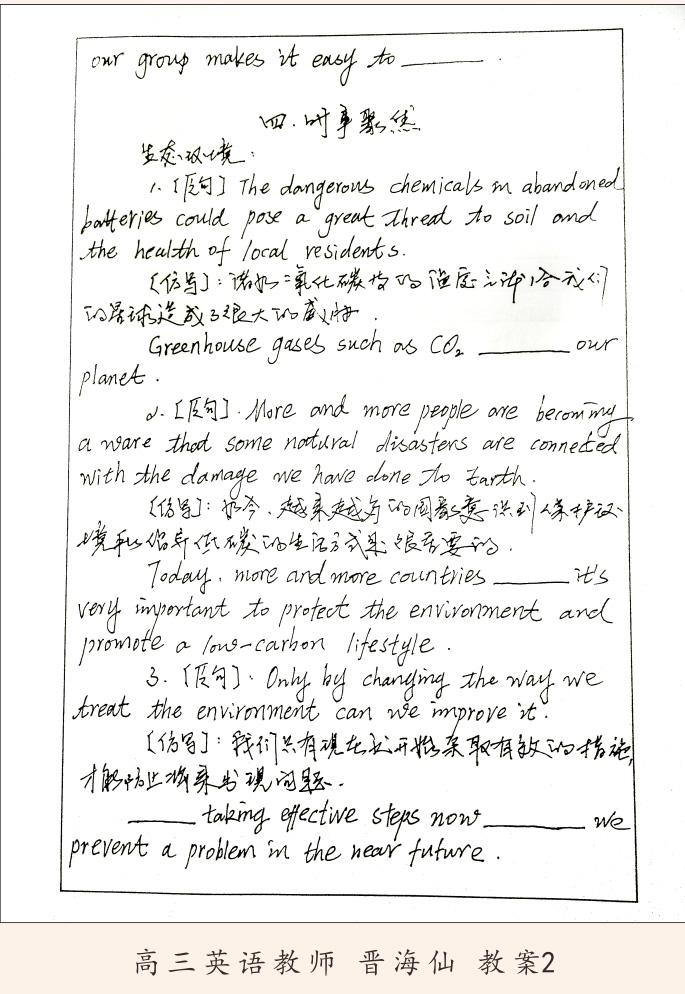 our group makes it easy to ______ .
四.时事聚焦
生态环境:
1.[原句] The dangerous chemicals in abandoned
batteries could pose a great threat to soil and
the health of local residents.
[仿写]:诸如二氧化碳等的温室气体给我们
的星球造成了很大的威胁.
Greenhouse gases such as CO₂ ______ our
planet.
2.[原句]. More and more people are becoming
aware that some natural disasters are connected
with the damage we have done to Earth.
[仿写]:如今,越来越多的国家意识到保护环
境和倡导低碳的生活方式是很重要的.
Today, more and more countries ______ it's
very important to protect the environment and
promote a low-carbon lifestyle.
3.[原句]. Only by changing the way we
treat the environment can we improve it.
[仿写]:我们只有现在就开始采取有效的措施,
才能防止将来出现问题.
______ taking effective steps now ______ we
prevent a problem in the near future.
高三英语教师 晋海仙 教案2